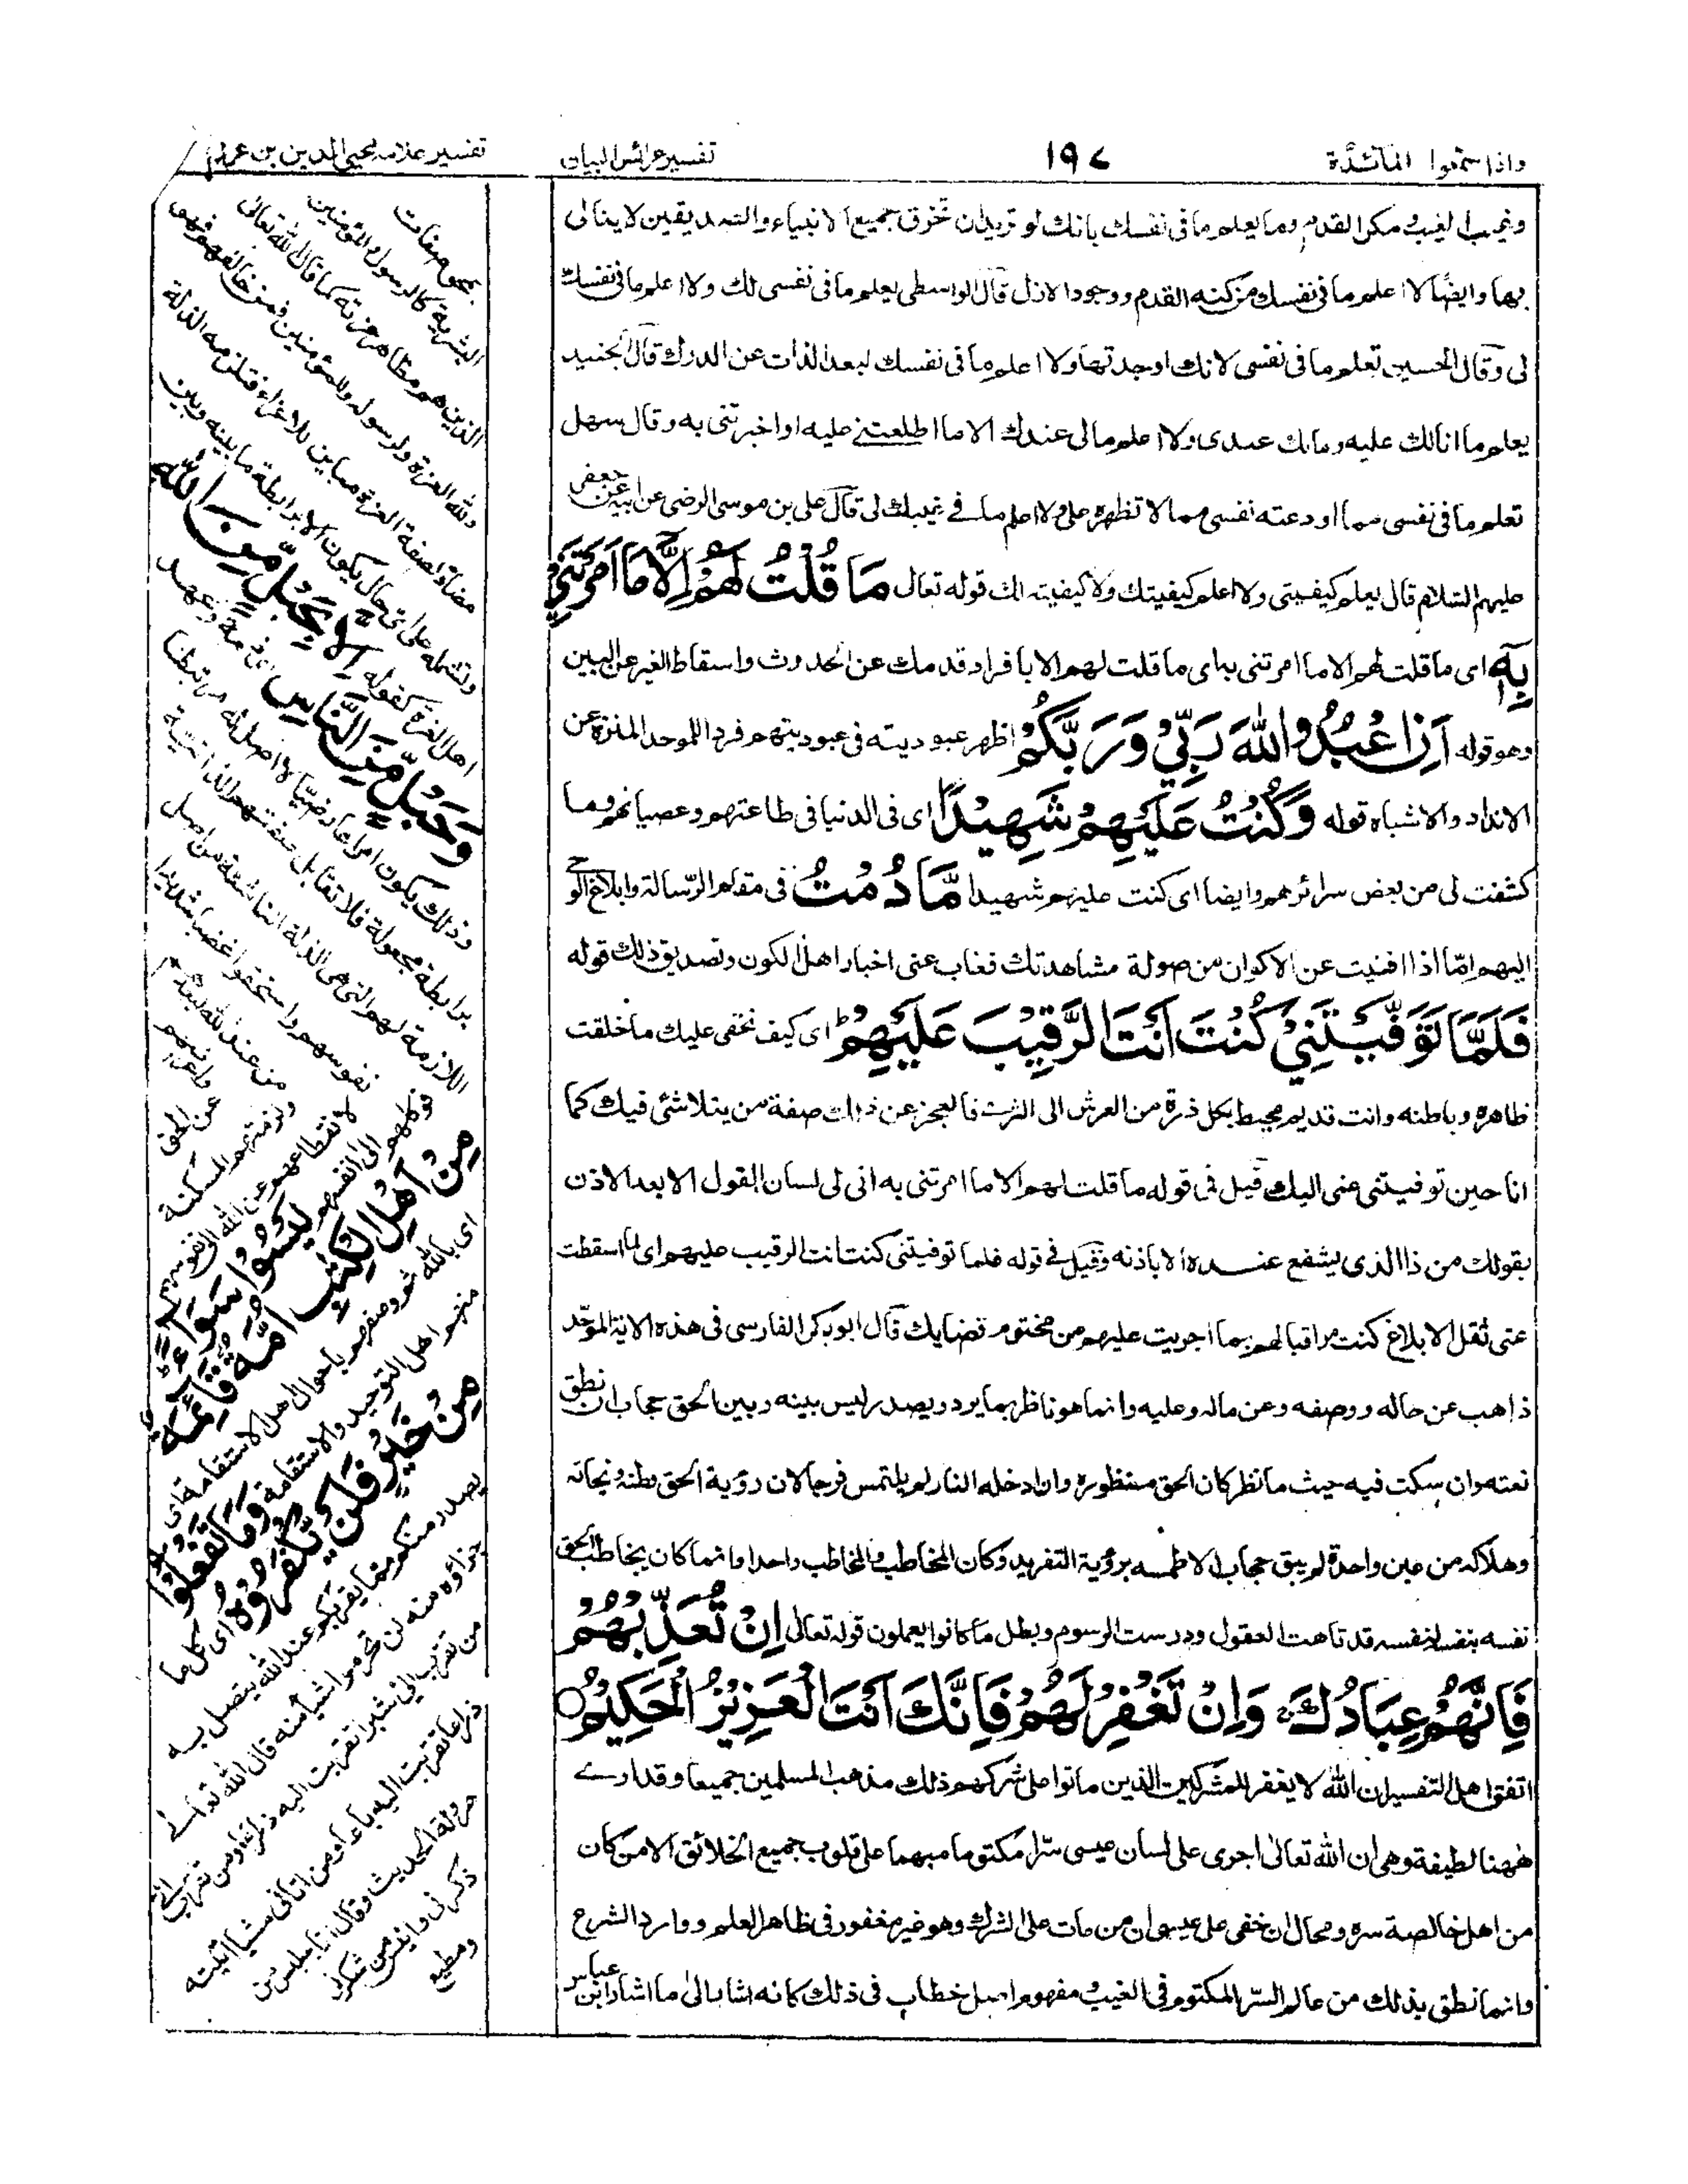 واذا سمعوا المآئدة
١٩٧
تفسير عرائس البيان
تفسير علامه محيى الدين بن عربى
وغيب الغيب ومكر القدم وما يعلم ما فى نفسك بانك لو تريد ان تخرق جميع الانبياء والصديقين لا يبالى
بها وايضًا لا اعلم ما فى نفسك من كنه القدم ووجود الازل قال الواسطى يعلم ما فى نفسى لك ولا اعلم ما فى نفسك
لى وقال الحسين تعلم ما فى نفسى لانك اوجدتها ولا اعلم ما فى نفسك لبعد الذات عن الدرك قال الجنيد
يعلم ما انا لك عليه وما لك عندى ولا اعلم ما لى عندك الا ما اطلعتنى عليه او اخبرتنى به وقال سهل
تعلم ما فى نفسى مما اودعته نفسى مما لا تظهره على ولا اعلم ما فى غيبك لى قال على بن موسى الرضى عن ابيه عن جعفر
عليهم السلام قال يعلم كيفيتى ولا اعلم كيفيتك ولا كيفيته لك قوله تعالى مَا قُلْتُ لَهُمْ اِلَّا مَا اَمَرْتَنِيْ
بِهٖ اى ما قلت لهم الا ما امرتنى به اى ما قلت لهم الا بافراد قدمك عن الحدوث واسقاط الغير عن البين
وهو قوله اَنِ اعْبُدُوا اللّٰهَ رَبِّيْ وَرَبَّكُمْ اظهر عبوديته فى عبوديتهم فردا للموحد المنزه عن
الانداد والاشباه قوله وَكُنْتُ عَلَيْهِمْ شَهِيْدًا اى فى الدنيا فى طاعتهم وعصيانهم وما
كشفت لى من بعض سرائرهم وايضا اى كنت عليهم شهيدا مَّا دُمْتُ فى مقام الرسالة وابلاغ الوحى
اليهم امّا اذا افنيت عن الاكوان من صولة مشاهدتك فغاب عنى اخبار اهل الكون وتصديق ذلك قوله
فَلَمَّا تَوَفَّيْتَنِيْ كُنْتَ اَنْتَ الرَّقِيْبَ عَلَيْهِمْ اى كيف نخفى عليك ما خلقت
ظاهره وباطنه وانت قديم محيط بكل ذرة من العرش الى الثرى فالعجز عن ذلك صفة من يتلاشى فيك كما
انا حين توفيتنى عنى اليك قيل فى قوله ما قلت لهم الا ما امرتنى به انى لى لسان القول الا بعد الاذن
بقولك من ذا الذى يشفع عنده الا باذنه وقيل فى قوله فلما توفيتنى كنت انت الرقيب عليهم اى لما اسقطت
عنى ثقل الابلاغ كنت مراقبا لهم بما اجريت عليهم من مختوم قضايك قال ابوبكر الفارسى فى هذه الاية الموحّد
ذاهب عن حاله ووصفه وعن ماله وعليه وانما هو ناظر بما يرد ويصدر ليس بينه وبين الحق حجاب ان نطق
نعته وان سكت فيه حيث ما نظر كان الحق منظوره وان ادخله النار لم يلتمس فرجا لان رؤية الحق وطنه ونجاته
وهلاكه من عين واحدة لم يبق حجاب الا طمسه برؤية التفريد وكان المخاطب والمخاطب واحدا وانما كان يخاطب الحق
نفسه بنفسه لنفسه قد تاهت العقول ودرست الرسوم وبطل ما كانوا يعملون قوله تعالى اِنْ تُعَذِّبْهُمْ
فَاِنَّهُمْ عِبَادُكَ وَاِنْ تَغْفِرْ لَهُمْ فَاِنَّكَ اَنْتَ الْعَزِيْزُ الْحَكِيْمُ
اتفق اهل التفسير ان الله لا يغفر للمشركين الذين ماتوا على شركهم ذلك مذهب المسلمين جميعا وقد ارى
ههنا لطيفة وهى ان الله تعالى اجرى على لسان عيسى سرّا مكتوما مبهما على قلوب جميع الخلائق الا من كان
من اهل خالصة سره ومحال ان خفى على عيسى ان من مات على الشرك وهو غير مغفور فى ظاهر العلم ووارد الشرع
وانما نطق بذلك من عالم السرّ المكتوم فى الغيب ومفهوم اصل خطاب فى ذلك كانه اشار الى ما اشار ابن عباس
بمحو صفات
البشرية كالرسول والمؤمنين
الذين هم مظاهر عزته كما قال الله تعالى
ولله العزة ولرسوله وللمؤمنين فمن خالفهم فهو
مضاد لصفة العزة مباين للاعزاء فتلزمه الذلة
وتشمله على اى حال يكون الا برابطة ما بينه وبين
اهل العزة كقوله اِلَّا بِحَبْلٍ مِّنَ اللّٰهِ
وَحَبْلٍ مِّنَ النَّاسِ اى ذمة وعهد
وذلك يكون امرا عارضيا لا اصل له مرتبطا
برابطة مجعولة فلا تقابل صفتهم الذاتية
اللازمة لهم التى هى الذلة الناشئة من اصل
نفوسهم واستحقوا غضبا شديدا
من عند الله لبعدهم
واعراضهم
عن الحق
ولزمتهم المسكنة
لانقطاعهم عن الله الى نفوسهم
فوكلهم الى انفسهم لَيْسُوْا سَوَآءً
مِنْ اَهْلِ الْكِتٰبِ اُمَّةٌ قَآئِمَةٌ
اى بالله ثم وصفهم باحوال اهل الاستقامة اى
منهم اهل التوحيد والاستقامة وَمَا تَفْعَلُوْا
مِنْ خَيْرٍ فَلَنْ تُكْفَرُوْهُ اى كل ما
يصدر منكم مما يقربكم عند الله يتصل به
جزاؤه منه لن تحرموا شيأ منه قال الله تعالى
من تقرب الى شبرا تقربت اليه ذراعا ومن تقرب الى
ذراعا تقربت اليه باعا ومن اتانى مشيا اتيته
هرولة الحديث وقال انا جليس من
ذكرنى وانيس من شكرنى
ومطيع